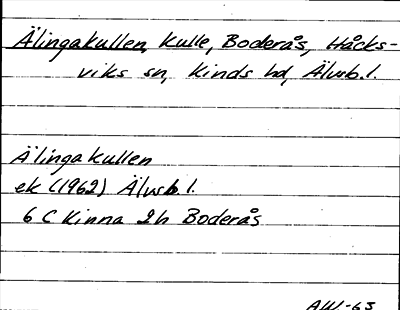 Älingakullen, kulle, Boderås, Håcks-
viks sn, Kinds hd, Älvsb. l.
Älingakullen
ek (1962) Älvsb. l.
6 C Kinna 2h Boderås
AW.-63